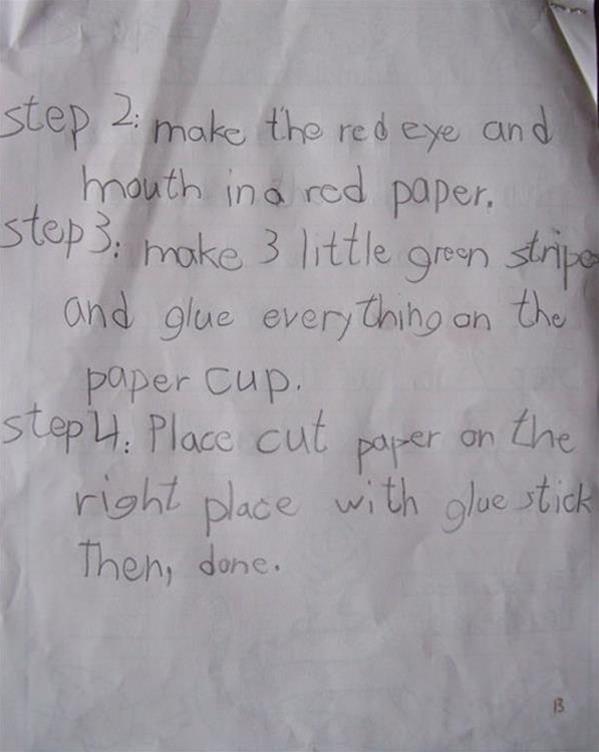 step 2: make the red eye and
mouth in a red paper.
step 3: make 3 little green stripe
and glue everything on the
paper cup.
step 4: Place cut paper on the
right place with glue stick
Then, done.
13